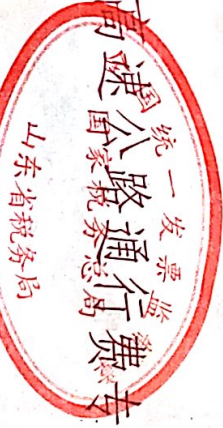 高速公路通行费专
全国统一发票监制章
国家税务总局
山东省税务局